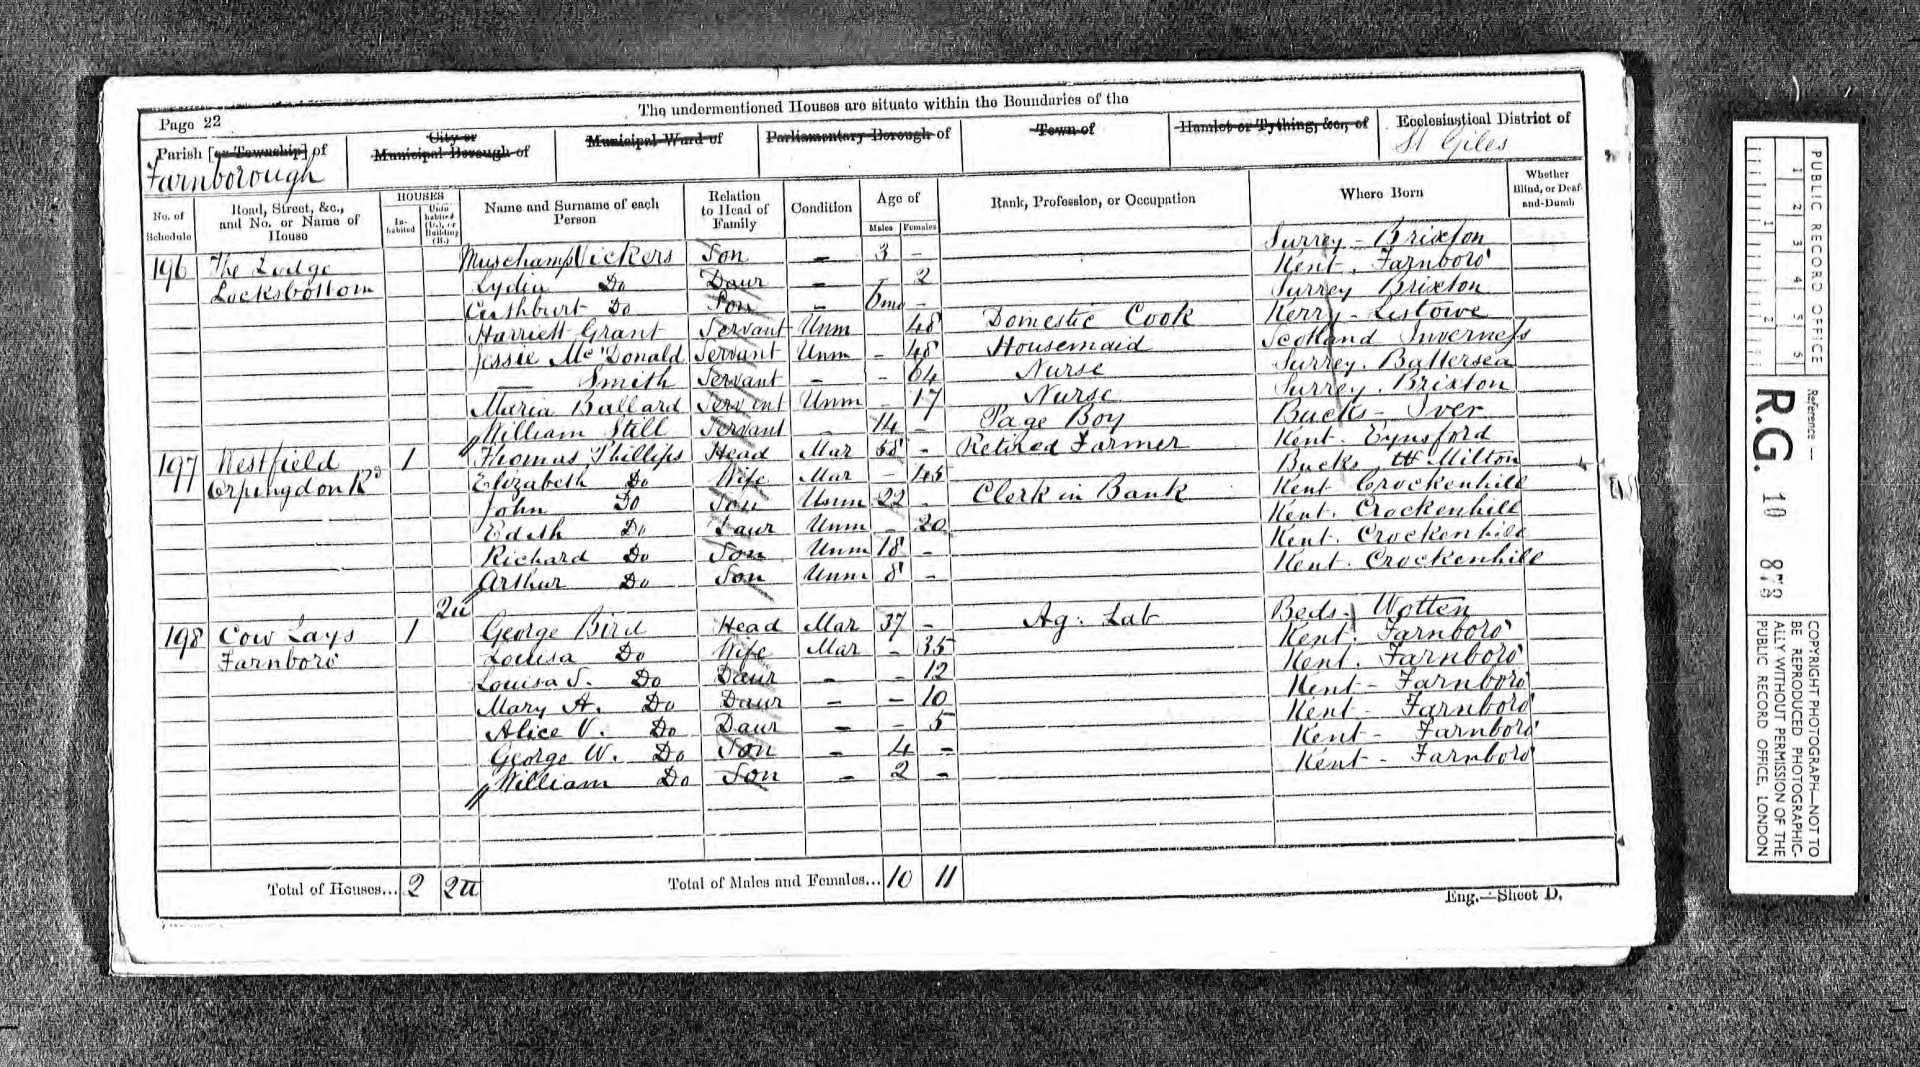 The undermentioned Houses are situate within the Boundaries of the
Page 22
Parish [or Township] of
Farnborough
City or
Municipal Borough of
Municipal Ward of
Parliamentary Borough of
Town of
Hamlet or Tything, &c., of
Ecclesiastical District of
St Giles
No. of Schedule
Road, Street, &c., and No. or Name of House
HOUSES
In-habited
Uninhabited (U.), or Building (B.)
Name and Surname of each Person
Relation to Head of Family
Condition
Age of
Males
Females
Rank, Profession, or Occupation
Where Born
Whether Blind, or Deaf-and-Dumb
196 The Lodge Muschamp Vickers Son – 3 – Surrey – Brixton
Locksbottom Lydia Do Daur – – 2 Kent. Farnboro'
Cuthburt Do Son – 6mo – Surrey Brixton
Harriett Grant Servant Unm 48 Domestic Cook Kerry – Listowe
Jessie McDonald Servant Unm – 48 Housemaid Scotland Inverness
— Smith Servant – – 64 Nurse Surrey. Battersea
Maria Ballard Servant Unm – 17 Nurse Surrey. Brixton
William Still Servant – 14 – Page Boy Bucks – Iver
197 Westfield 1 Thomas Phillips Head Mar 58 – Retired Farmer Kent. Eynsford
Orpingdon Rd Elizabeth Do Wife Mar – 45 Bucks Milton
John Do Son Unm 22 Clerk in Bank Kent Crockenhill
Edith Do Daur Unm – 20 Kent. Crockenhill
Richard Do Son Unm 18 – Kent. Crockenhill
Arthur Do Son Unm 8 – Kent. Crockenhill
2u
198 Cow Lays 1 George Bird Head Mar 37 – Ag. Lab Beds. Wotten
Farnboro' Louisa Do Wife Mar – 35 Kent. Farnboro'
Louisa S. Do Daur – – 12 Kent. Farnboro'
Mary A. Do Daur – – 10 Kent – Farnboro'
Alice V. Do Daur – – 5 Kent – Farnboro'
George W. Do Son – 4 – Kent – Farnboro'
William Do Son – 2 – Kent – Farnboro'
Total of Houses... 2 2u Total of Males and Females... 10 11
Eng.—Sheet D.
PUBLIC RECORD OFFICE
1 2 3 4 5 5
1 2
Reference –
R.G. 10 873
COPYRIGHT PHOTOGRAPH—NOT TO
BE REPRODUCED PHOTOGRAPHIC-
ALLY WITHOUT PERMISSION OF THE
PUBLIC RECORD OFFICE, LONDON